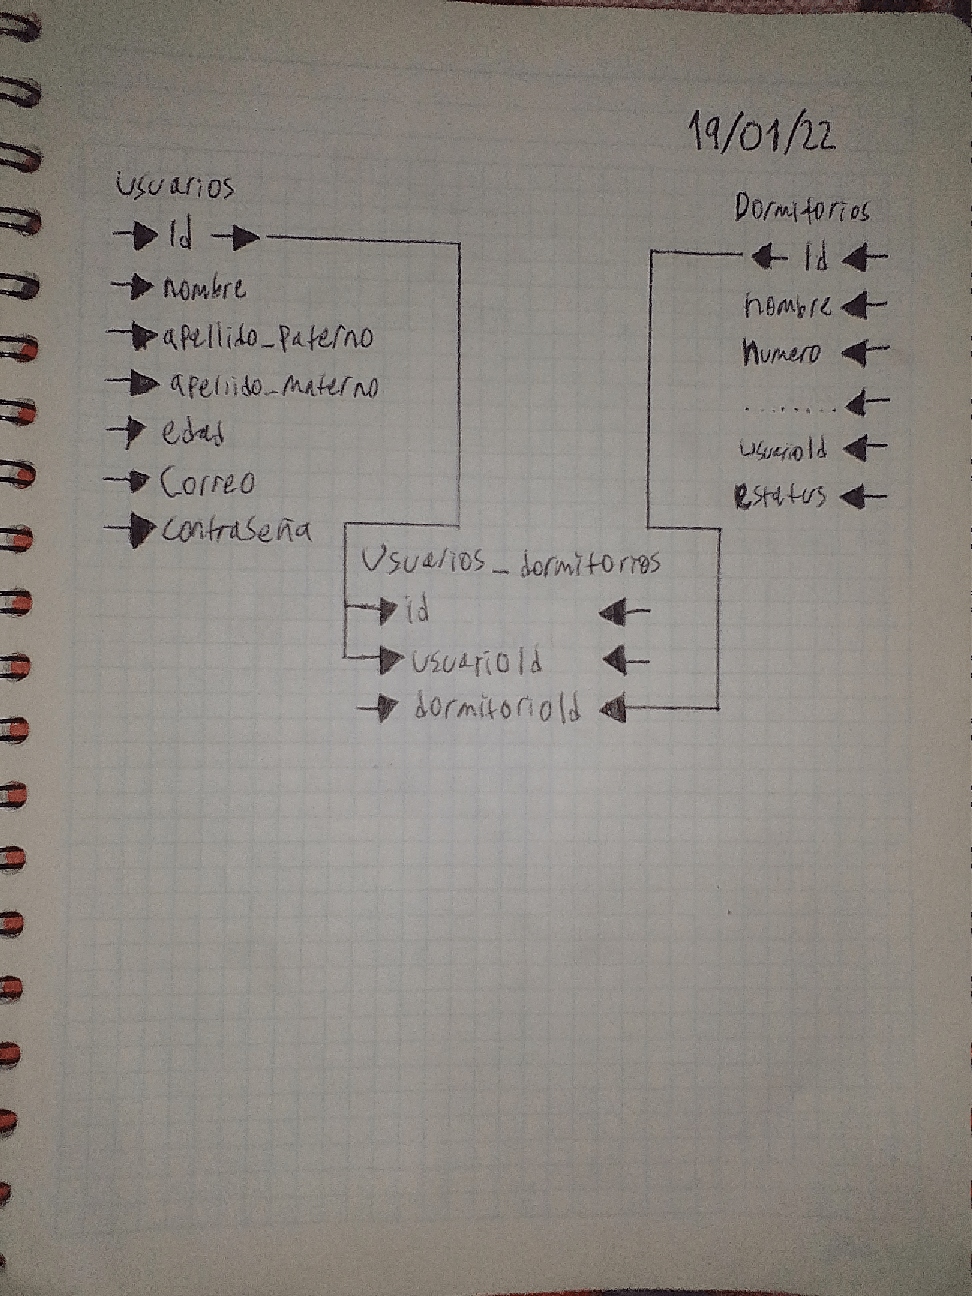 19/01/22
Usuarios
Id
nombre
apellido_paterno
apellido_materno
edad
Correo
Contraseña
Dormitorios
Id
nombre
Numero
........
usuarioId
estatus
Usuarios_dormitorios
id
usuarioId
dormitorioId